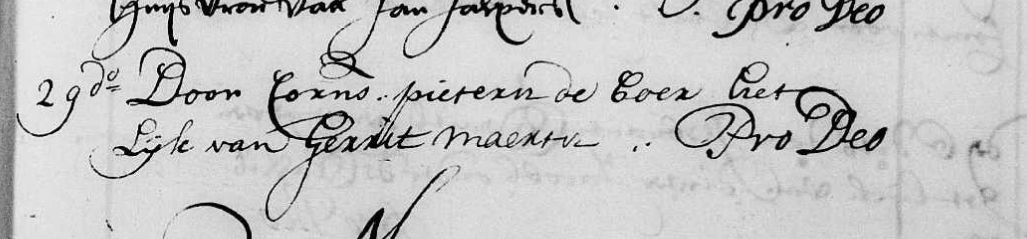 Huijs Vrou Van Jan Jaspers . . Pro Deo
29 do Door Corns. pieterss de boer het
Lijk van Gerrit maertss .. Pro Deo